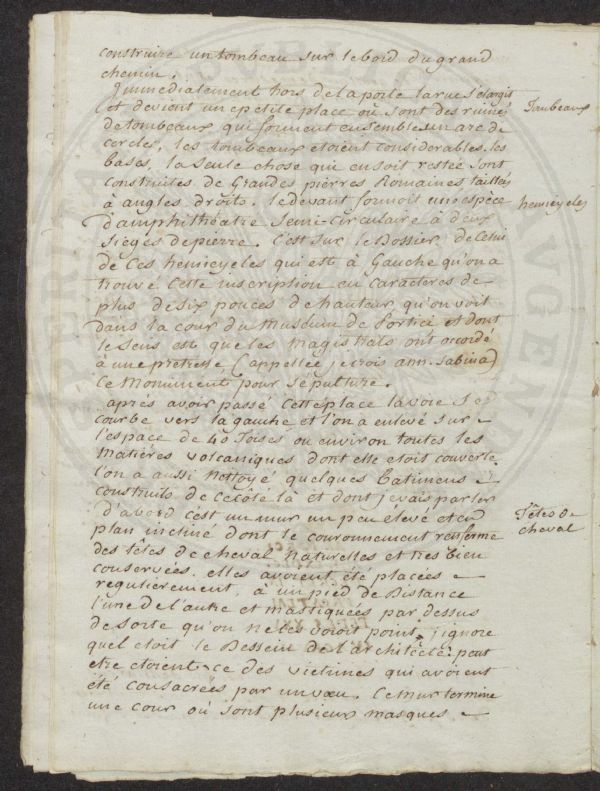 construire un tombeau sur le bord du grand
chemin.
Immédialement hors de la porte la rue s'elargit
et devient une petite place où sont des ruines
de tombeaux qui forment ensemble un arc de
cercles, les tombeaux etoient considerables. les
bases, la seule chose qui en soit restée sont
construites de Grandes pierres Romaines taillées
à angles droits. le devant formoit une espèce
d'amphithéatre semi-circulaire à deux
sièges de pierre. C'est sur le Dossier de Celui
de Ces hemicycles qui est à Gauche qu'on a
trouvé Cette inscription en caractères de
plus de six pouces de hauteur qu'on voit
dans la cour du Muséum de Portici et dont
le sens est que les magistrats ont accordé
à une prètresse (appellee je crois ann. sabina)
Ce Monument pour sépulture.
après avoir passé Cette place la voie se
courbe vers la gauche et l'on a enlevé sur
l'espace de 40 Toises ou environ toutes les
matières volcaniques dont elle etoit couverte.
l'on a aussi nettoyé quelques batimens
construits de ce côté là et dont je vais parler
d'abord c'est un mur un peu élevé et en
plan incliné dont le couronnement renferme
des têtes de cheval naturelles et très bien
conservées. elles avoient été placées
regulierement, à un pied de Distance
l'une de l'autre et mastiquées par dessus
de sorte qu'on ne les voioit point. j'ignore
quel etoit le Dessein de l'architècte: peut
etre etoient-ce des victimes qui avoient
été consacrées par un vœu. Ce mur termine
une cour où sont plusieurs masques
Tombeaux
hemicycles
Têtes de
cheval